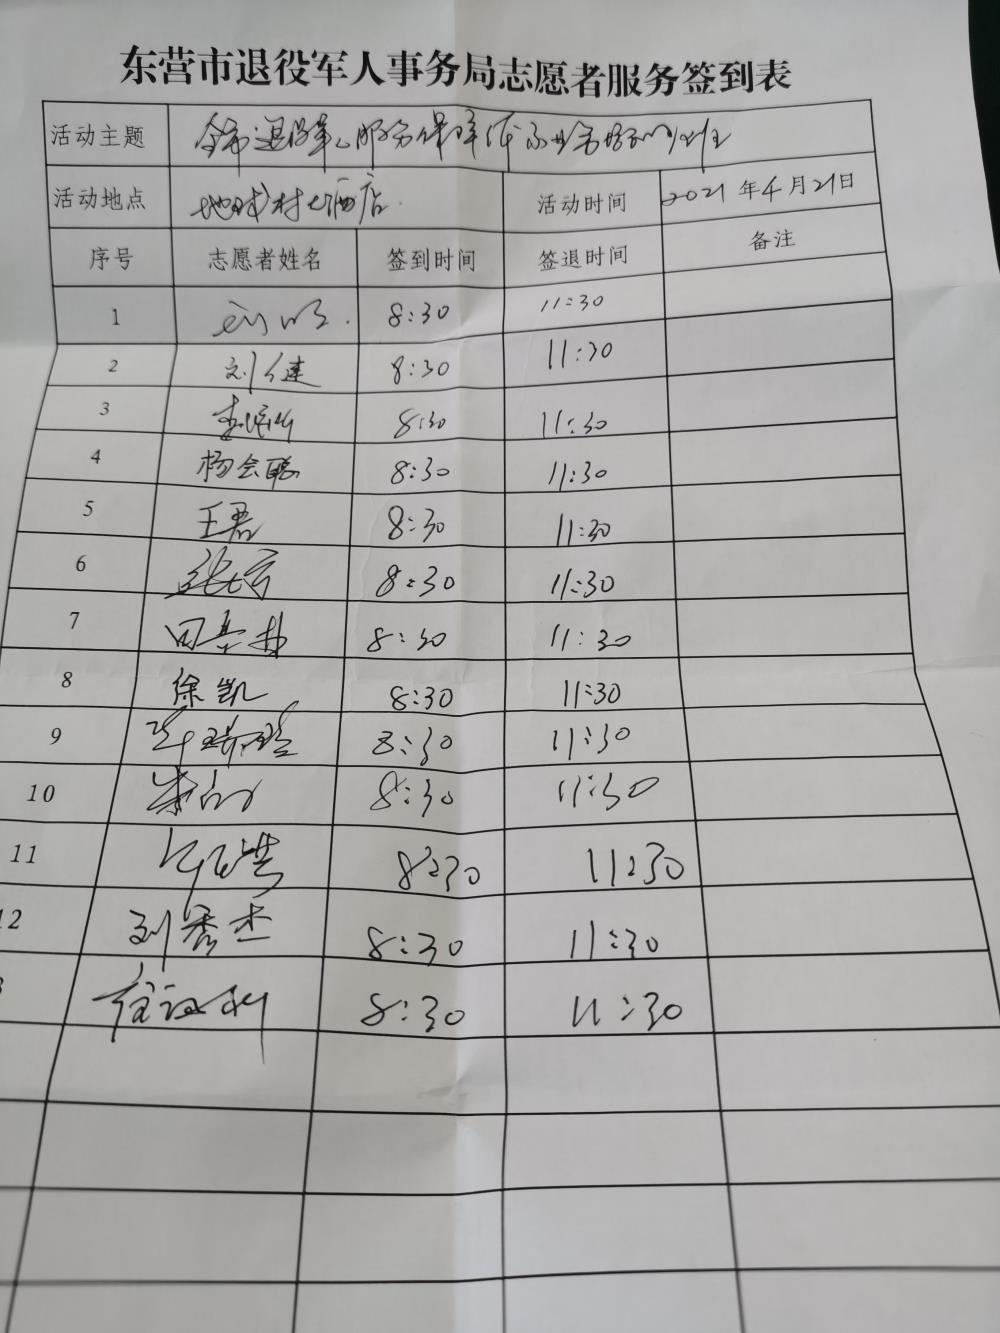 东营市退役军人事务局志愿者服务签到表
活动主题 全市退役军人服务保障体系业务培训班
活动地点 地球村大酒店 活动时间 2021年4月21日
序号 志愿者姓名 签到时间 签退时间 备注
1 8:30 11:30
2 刘健 8:30 11:30
3 8:30 11:30
4 杨会聪 8:30 11:30
5 王君 8:30 11:30
6 8:30 11:30
7 8:30 11:30
8 徐凯 8:30 11:30
9 8:30 11:30
10 8:30 11:30
11 8:30 11:30
12 刘秀杰 8:30 11:30
3 8:30 11:30